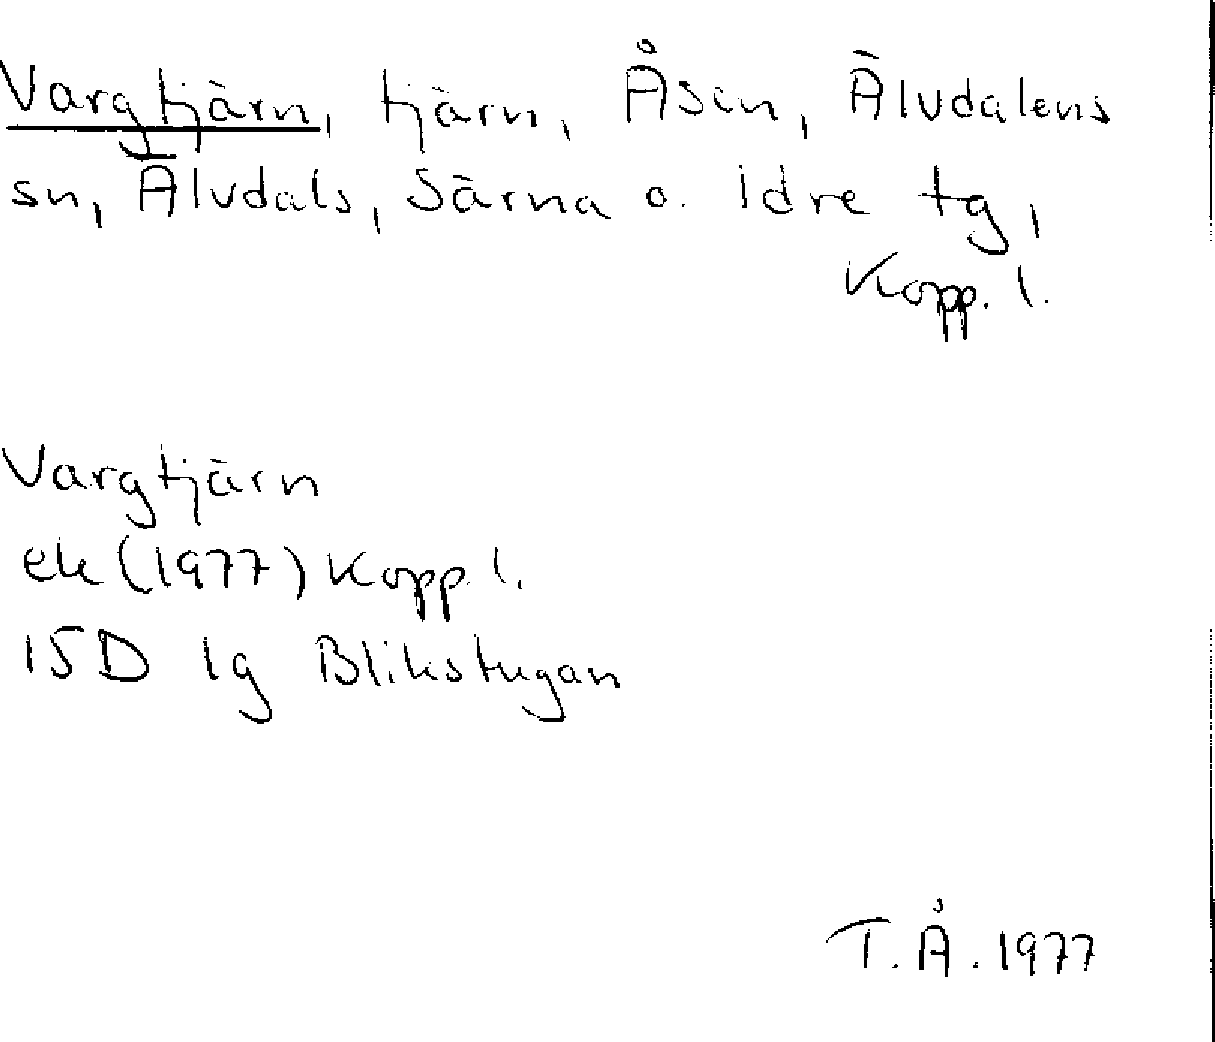 Vargtjärn, tjärn, Åsen, Älvdalens
sn, Älvdals, Särna o. Idre tg,
Kopp. l.
Vargtjärn
ek (1977) Kopp l.
15D 1g Blikstugan
T.Å. 1977